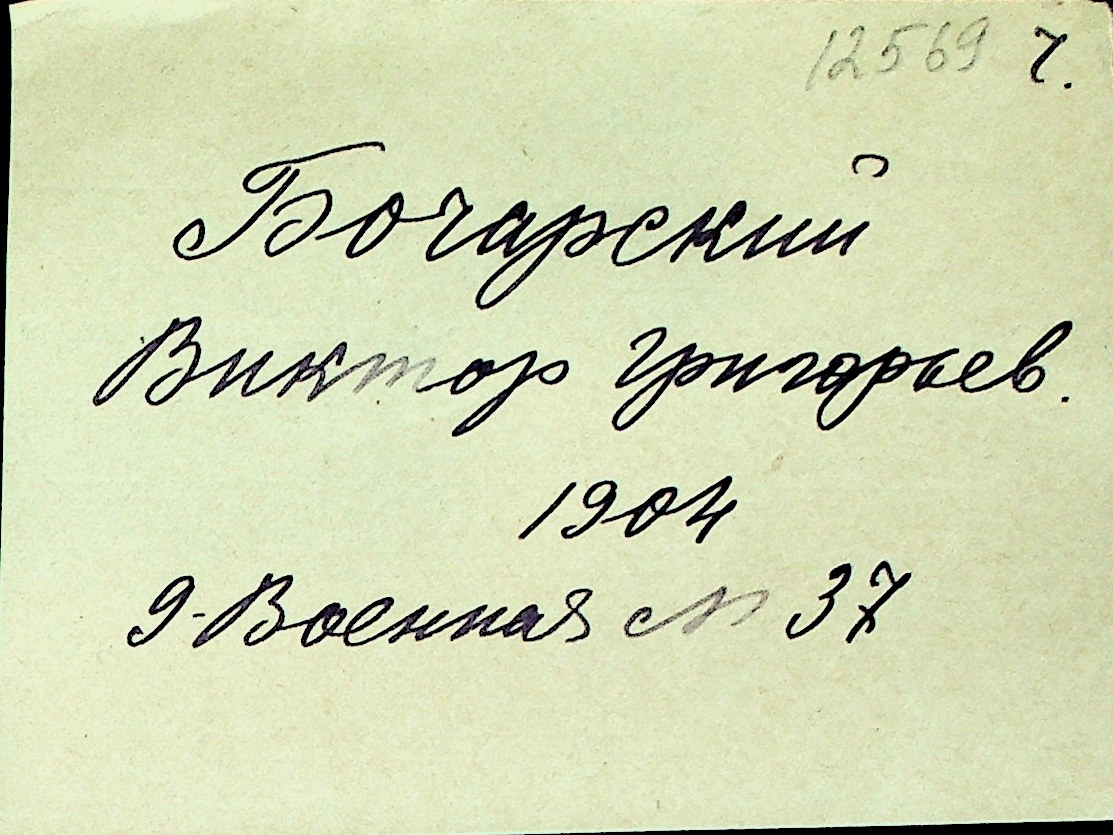 12569 г.
Бочарский
Виктор Григорьев.
1904
9-Военная № 37